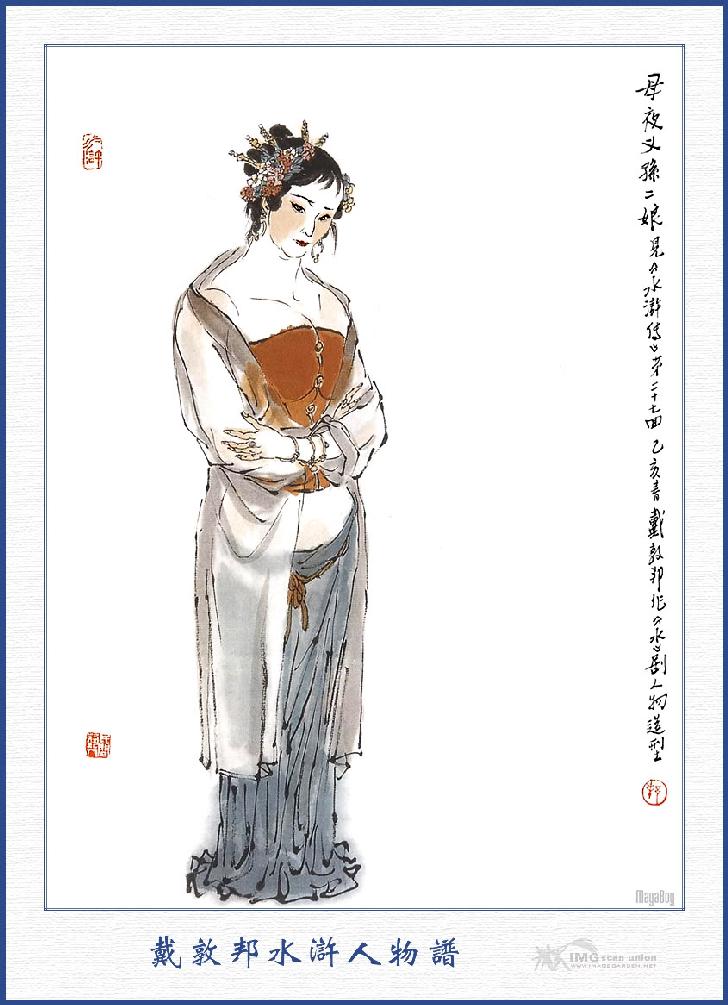 母夜叉孫二娘見《水滸傳》第二十七回 乙亥春戴敦邦作《水》劇人物造型
MagaBoy
戴敦邦水滸人物譜
IMG scan union
WWW.IMAGEGARDEN.NET